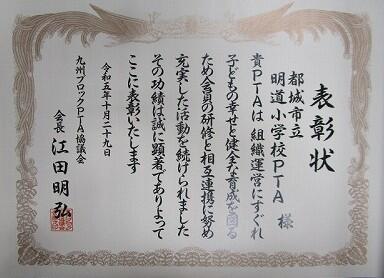 表彰状
都城市立
明道小学校PTA 様
貴PTAは組織運営にすぐれ
子どもの幸せと健全な育成を図る
ため会員の研修と相互連携に努め
充実した活動を続けられました
その功績は誠に顕著でありよって
ここに表彰いたします
令和五年十月二十九日
九州ブロックPTA協議会
会長 江田明弘